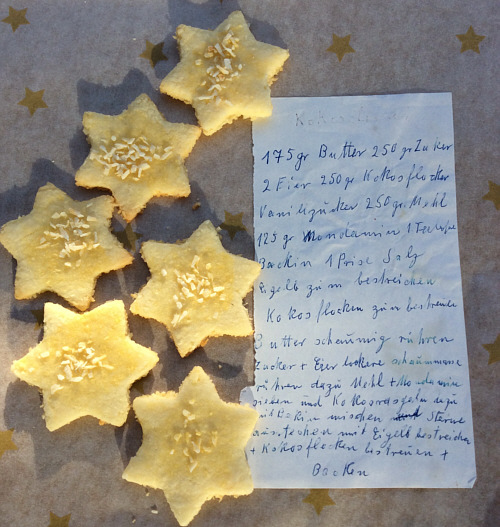 175gr Butter 250gr Zuker
2 Eier 250gr Kokosflocken
Vanilizucker 250gr. Mehl
125 gr Mondamin 1 Teel
Backin 1 Prise Salz
Eigelb zum bestreichen
Kokosflocken zum bestreuen
Butter schaumig rühren
Zucker + Eier lockere schaummasse
rühren dazu Mehl + Mondamin
sieben und Kokosraspeln dazu
mit Bakin mischen Sterne
ausstechen mit Eigelb bestreichen
+ Kokosflocken bestreuen +
Backen